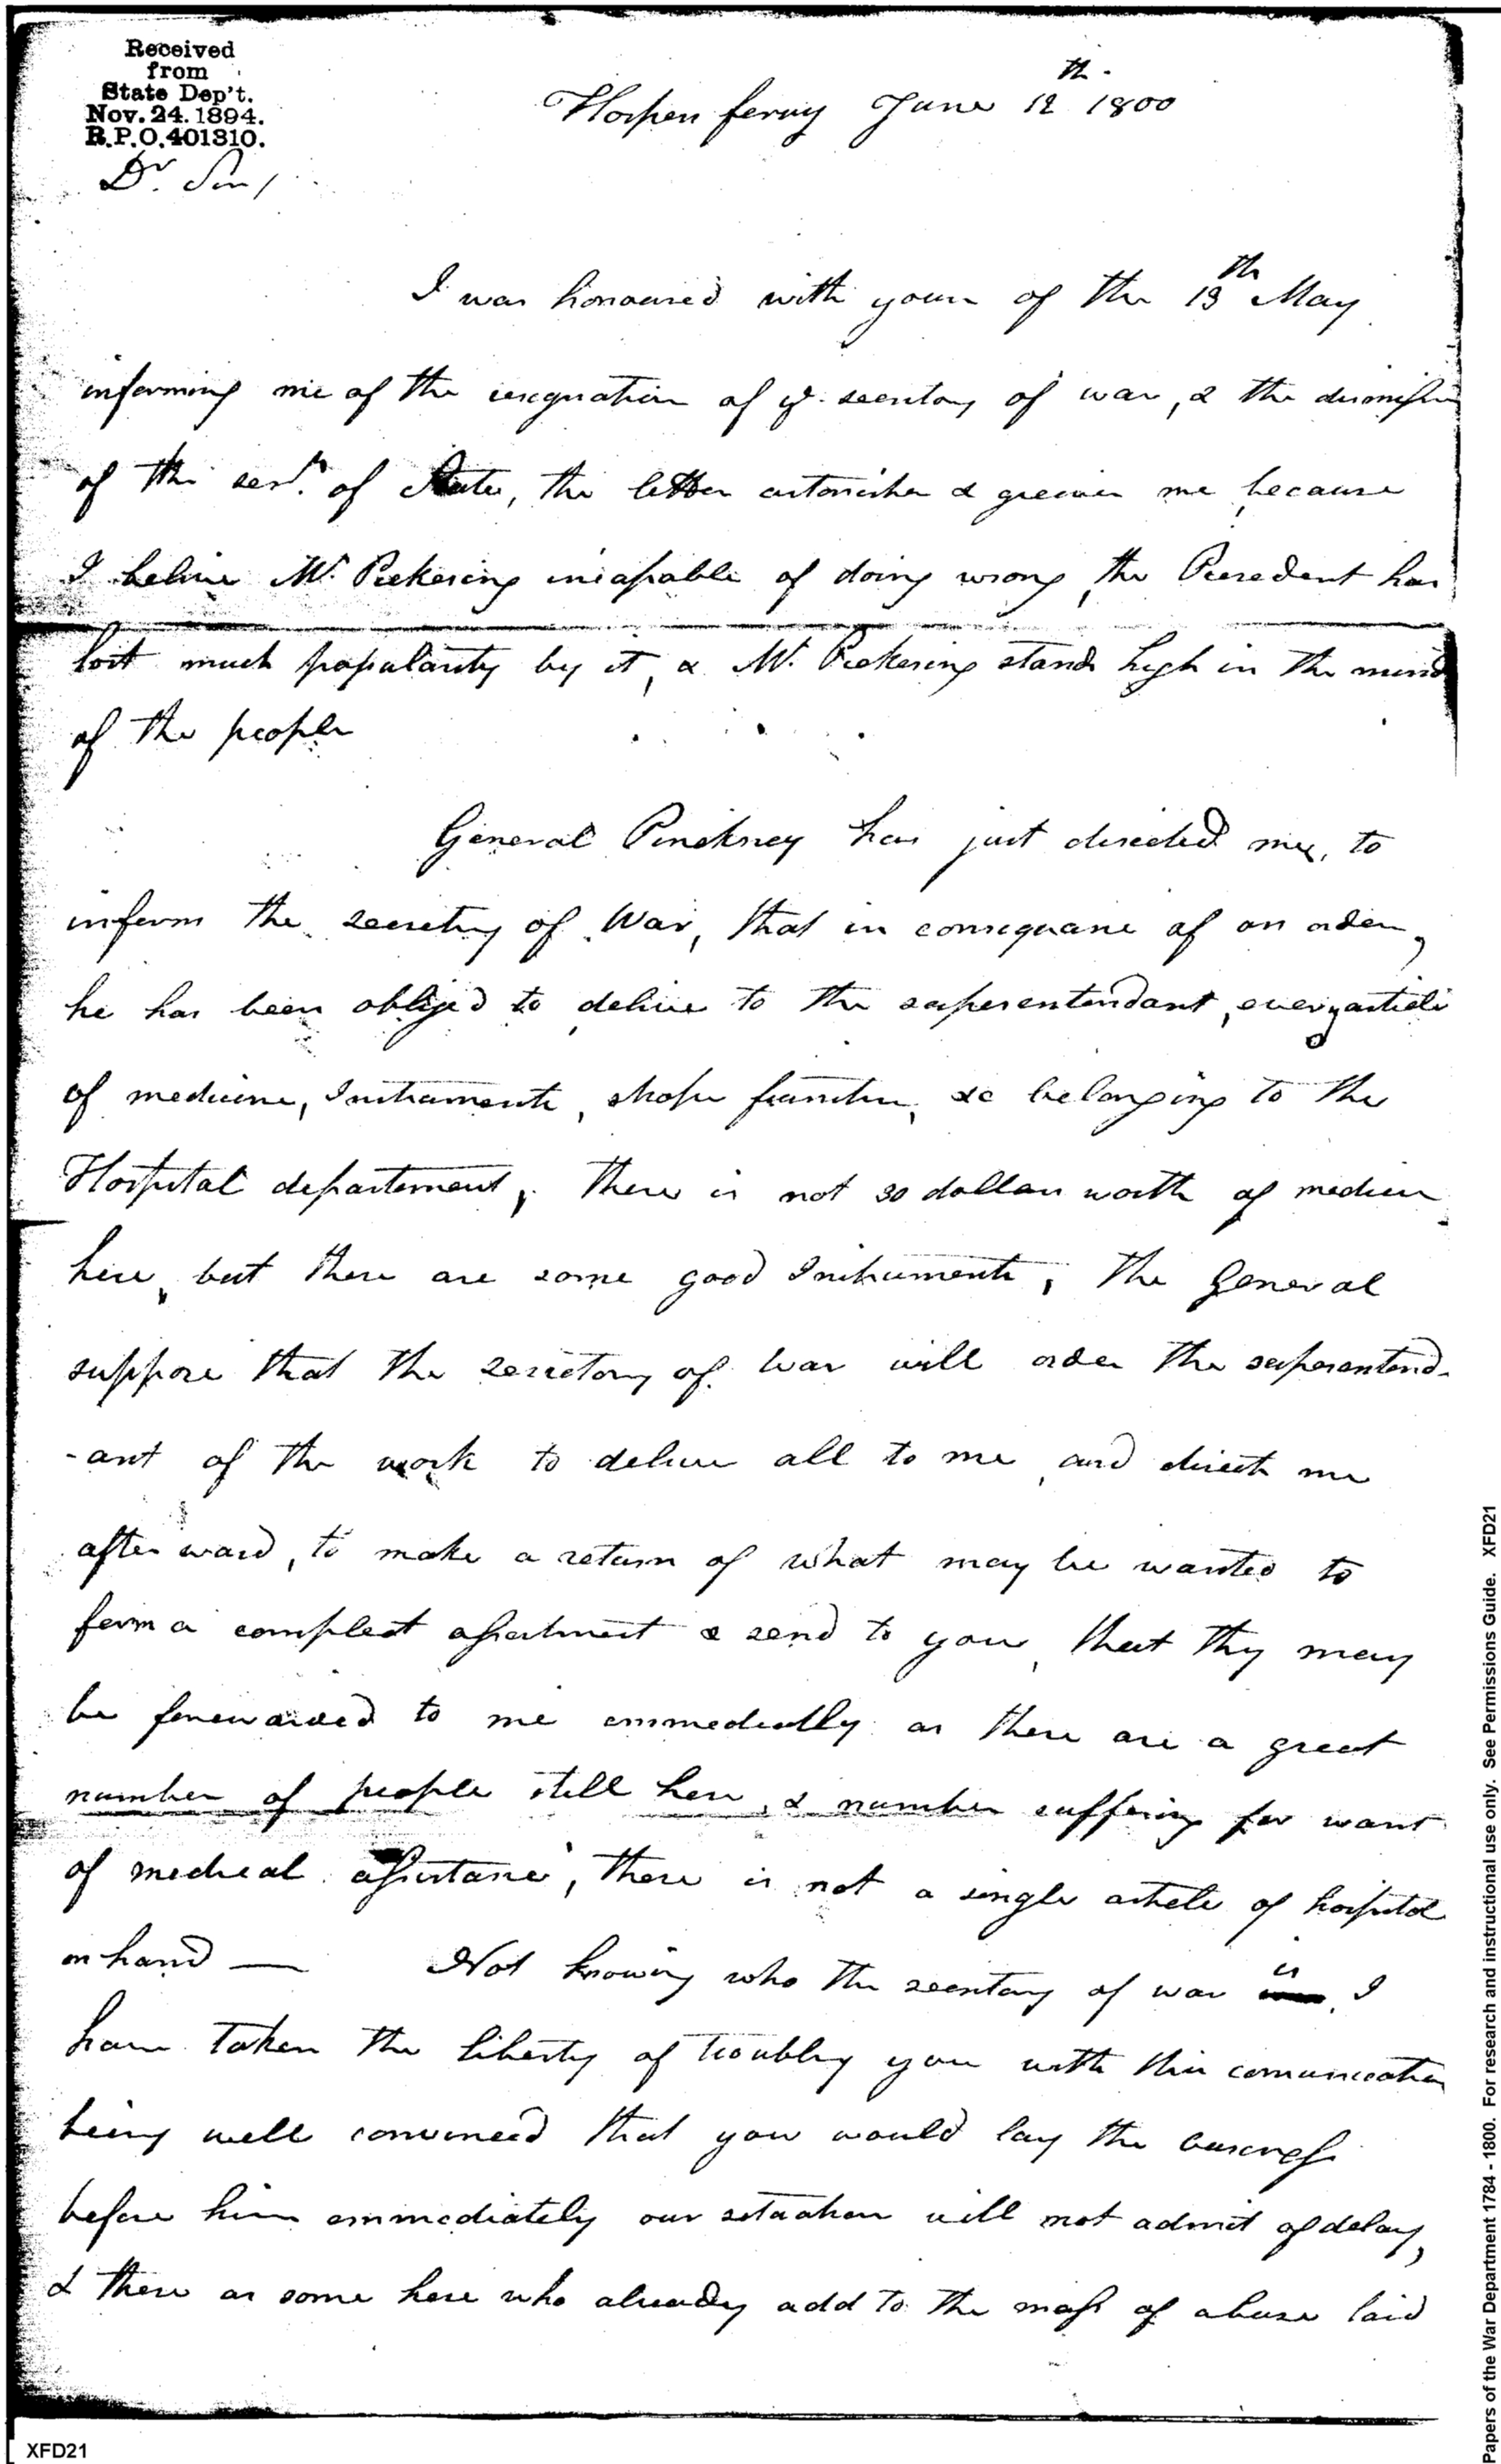 Received
from
State Dep't.
Nov. 24. 1894.
R.P.O. 401310.
Harpers ferry June 12th. 1800
Dr. Sir,
I was honoured with yours of the 13th May
informing me of the resignation of ye. secretary of war, & the dismission
of the secy. of State, the latter astonishes & greives me because
I believe Mr. Pickering incapable of doing wrong, the Presedent has
lost much popularity by it, & Mr. Pickering stands high in the mind
of the people
General Pinckney has just directed me, to
inform the secretry of War, that in consequance of an order,
he has been obliged to deliver to the superentendant, every article
of medicine, Instruments, shope furniture, &c belonging to the
Hospital departement, there is not 30 dollars worth of medicen
here, but there are some good Instruments, The General
suppose that the secretary of war will order the superentend-
-ant of the work to deliver all to me, and direct me
after ward, to make a return of what may be wanted to
form a compleat assortment & send to you, that they may
be forewarded to me emmediatly as there are a great
number of people still here, & number suffering for want
of medical assistance, there is not a single article of hospital
on hand — Not knowing who the secretary of war is, I
have taken the liberty of troubling you with this comunication
being well convinced that you would lay the business
before him emmediately our setuation will not admit of delay,
& there are some here who already add to the mass of abuse laid
XFD21
Papers of the War Department 1784 - 1800. For research and instructional use only. See Permissions Guide. XFD21